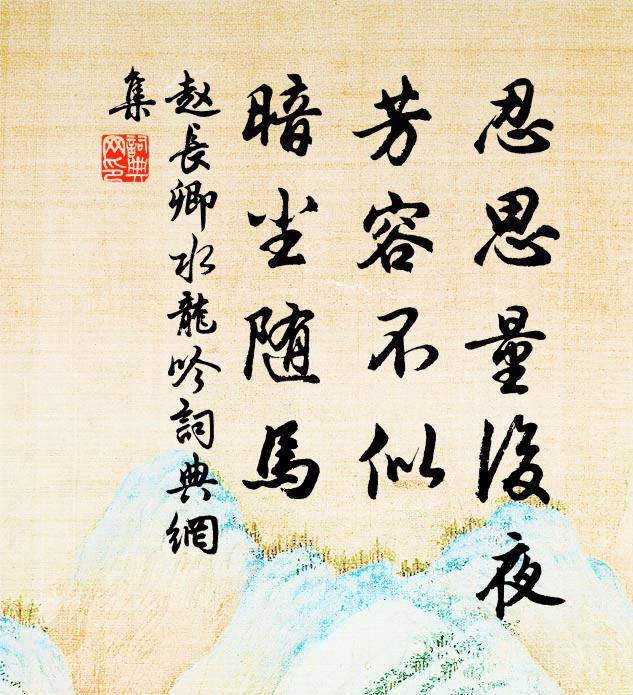 忍思量後夜
芳容不似
暗尘随馬
赵長卿水龍吟詞典網
集
詞典
网印